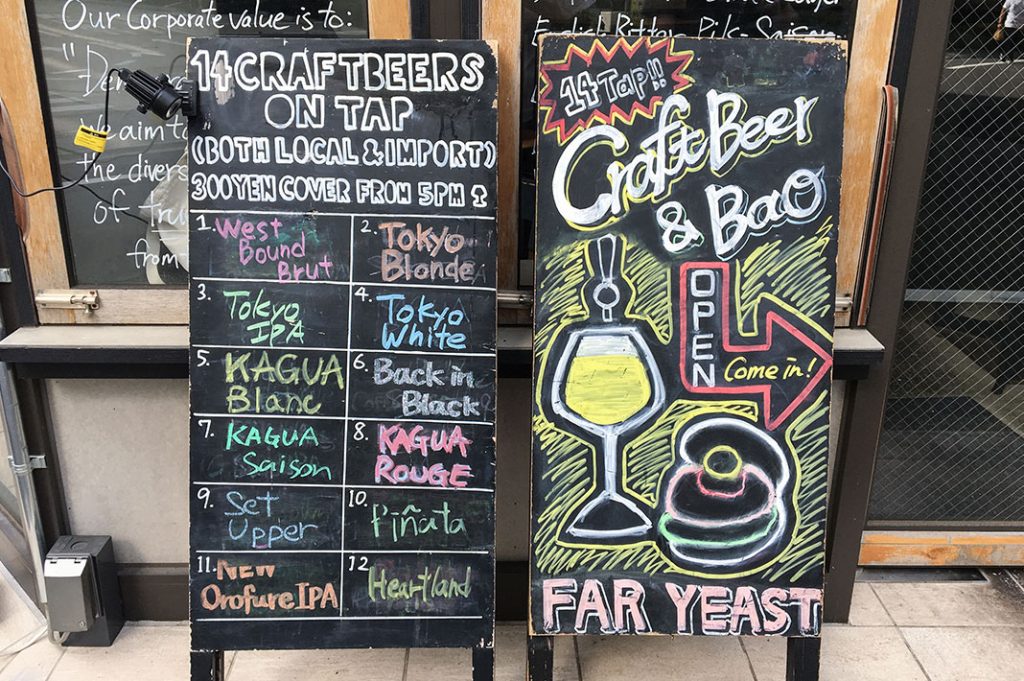 Our Corporate value is to:
We aim to
the divers
of tru
from
English Bitter, Pils, Saison
14 CRAFT BEERS
ON TAP
(BOTH LOCAL & IMPORT)
300YEN COVER FROM 5PM
1. West
Bound
Brut
2. Tokyo
Blonde
3. Tokyo
IPA
4. Tokyo
White
5. KAGUA
Blanc
6. Back in
Black
7. KAGUA
Saison
8. KAGUA
ROUGE
9. Set
Upper
10. Piñata
11. NEW
Orofure IPA
12 Heartland
14 Tap!!
Craft Beer
& Bao
OPEN
Come in!
FAR YEAST